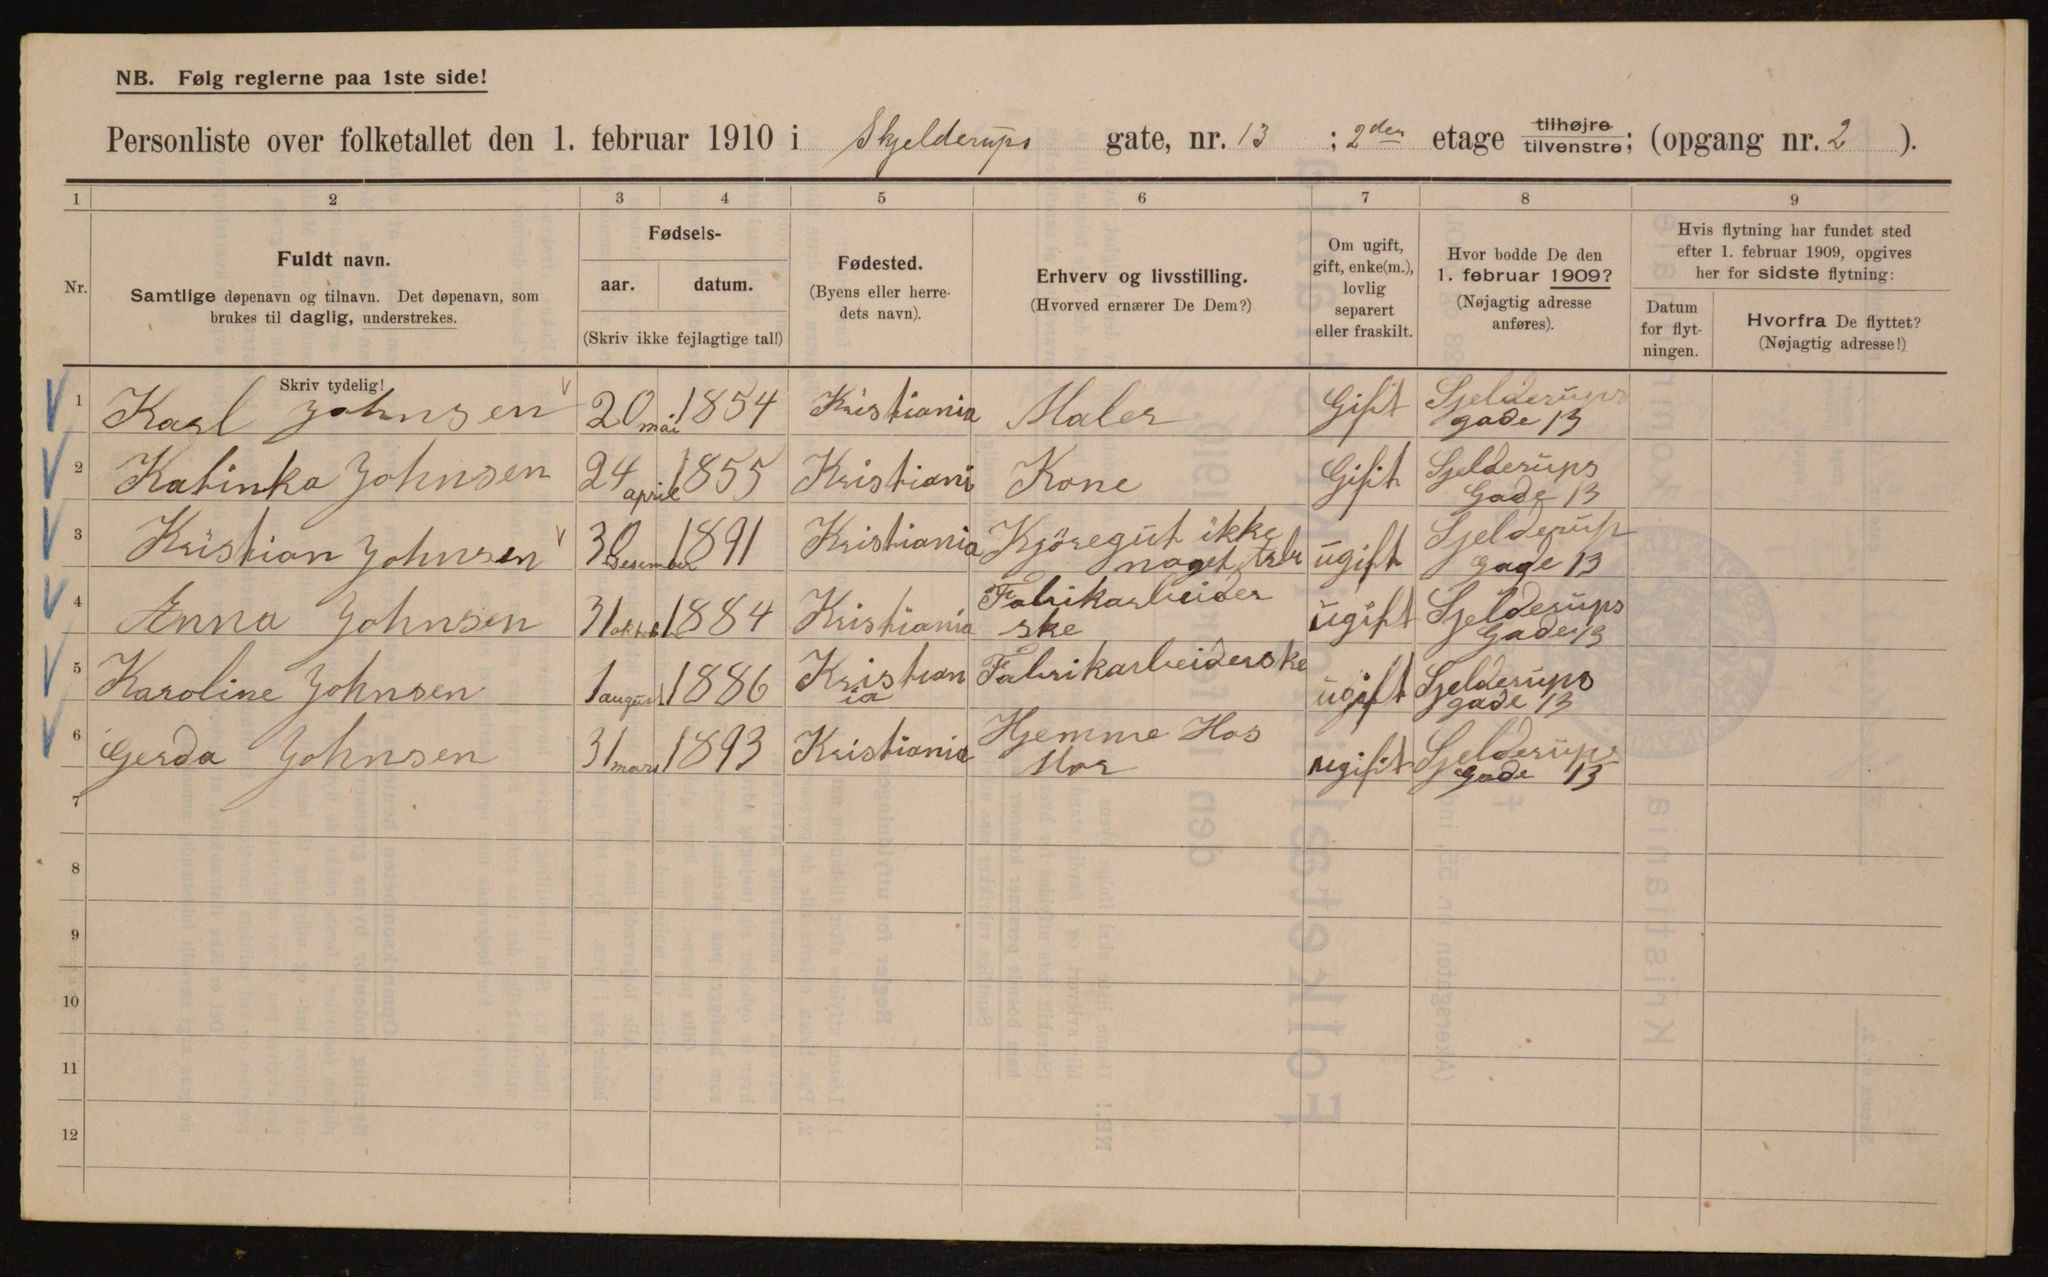 NB. Følg reglerne paa 1ste side!
Personliste over folketallet den 1. februar 1910 i Skjelderups gate, nr. 13 ; 2den etage tilhøjre tilvenstre; (opgang nr. 2 ).
1 2 3 4 5 6 7 8 9
Nr.
Fuldt navn.
Samtlige døpenavn og tilnavn. Det døpenavn, som
brukes til daglig, understrekes.
Skriv tydelig!
Fødsels-
aar. datum.
(Skriv ikke fejlagtige tal!)
Fødested.
(Byens eller herre-
dets navn).
Erhverv og livsstilling.
(Hvorved ernærer De Dem?)
Om ugift,
gift, enke(m.),
lovlig
separert
eller fraskilt.
Hvor bodde De den
1. februar 1909?
(Nøjagtig adresse
anføres).
Hvis flytning har fundet sted
efter 1. februar 1909, opgives
her for sidste flytning:
Datum
for flyt-
ningen.
Hvorfra De flyttet?
(Nøjagtig adresse!)
1 Karl Johnsen 20 mai 1854 Kristiania Maler Gift Sjelderups
gade 13
2 Katinka Johnsen 24 april 1855 Kristiani Kone Gift Sjelderups
Gade 13
3 Kristian Johnsen 30 Desember 1891 Kristiania Kjöregut ikke ugift Sjelderup
noget Gade 13
4 Anna Johnsen 31 oktob 1884 Kristiania Fabrikarbeider ugift Sjelderups
ske Gade 13
5 Karoline Johnsen 1 august 1886 Kristian Fabrikarbeiderske ugift Sjelderups
ia gade 13
6 Gerda Johnsen 31 mars 1893 Kristiania Hjemme Hos ugift Sjelderups
Mor gade 13
7
8
9
10
11
12